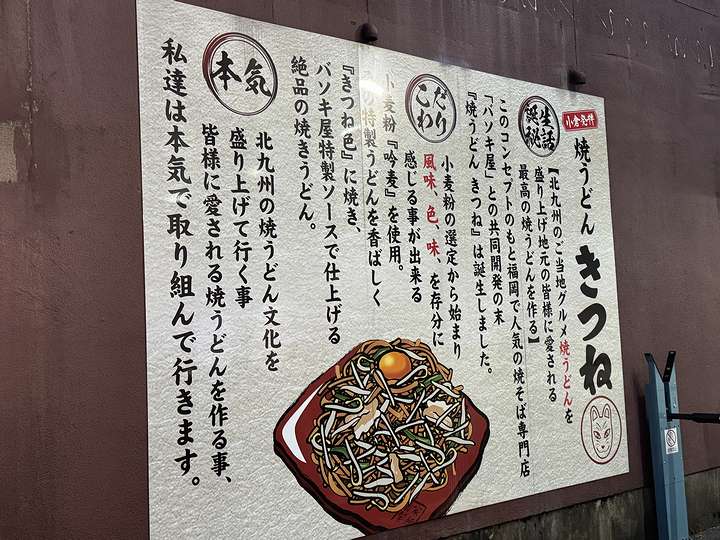 小倉発祥
焼うどん きつね
誕生秘話
【北九州のご当地グルメ焼うどんを
盛り上げ地元の皆様に愛される
最高の焼うどんを作る】
このコンセプトのもと福岡で人気の焼そば専門店
「バソキ屋」との共同開発の末
『焼うどん きつね』は誕生しました。
こだわり
小麦粉の選定から始まり
風味、色、味、を存分に
感じる事が出来る
小麦粉『吟麦』を使用。
の特製うどんを香ばしく
『きつね色』に焼き、
バソキ屋特製ソースで仕上げる
絶品の焼きうどん。
本気
北九州の焼うどん文化を
盛り上げて行く事
皆様に愛される焼うどんを作る事、
私達は本気で取り組んで行きます。